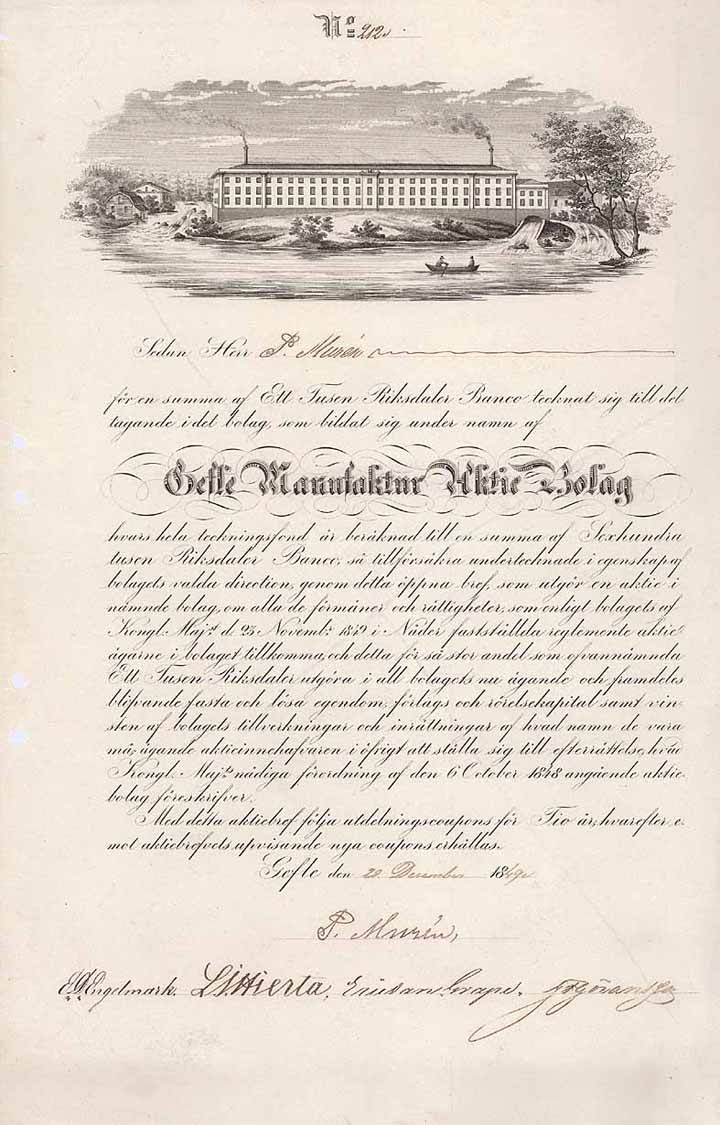 No 212.
Sedan Herr P. Murén
för en summa af Ett Tusen Riksdaler Banco tecknat sig till del
tagande i det bolag, som bildat sig under namn af
Gefle Manufaktur Aktie Bolag
hvars hela teckningsfond är beräknad till en summa af Sexhundra
tusen Riksdaler Banco; så tillförsäkra undertecknade i egenskap af
bolagets valda direction, genom detta öppna bref, som utgör en aktie i
nämnde bolag, om alla de förmåner och rättigheter, som enligt bolagets af
Kongl. Majst d. 23 Novembr 1849 i Nåder fastställda reglemente aktie
ägarne i bolaget tillkomma, och detta för så stor andel som ofvannämnda
Ett Tusen Riksdaler utgöra i all bolagets nu ägande och framdeles
blifvande fasta och lösa egendom, förlags och rörelsekapital samt vin-
sten af bolagets tillverkningar och inrättningar af hvad namn de vara
må, ägande aktieinnehafvaren i öfrigt att ställa sig till efterrättelse, hvad
Kongl. Majts nådiga förordning af den 6 October 1848 angående aktie-
bolag föreskrifver.
Med detta aktiebref följa utdelningscoupons för Tio år, hvarefter, e-
mot aktiebrefvets uppvisande nya coupons erhållas.
Gefle den 20 December 1849.
P. Murén,
Engelmark. L J Hierta, Elfstrand